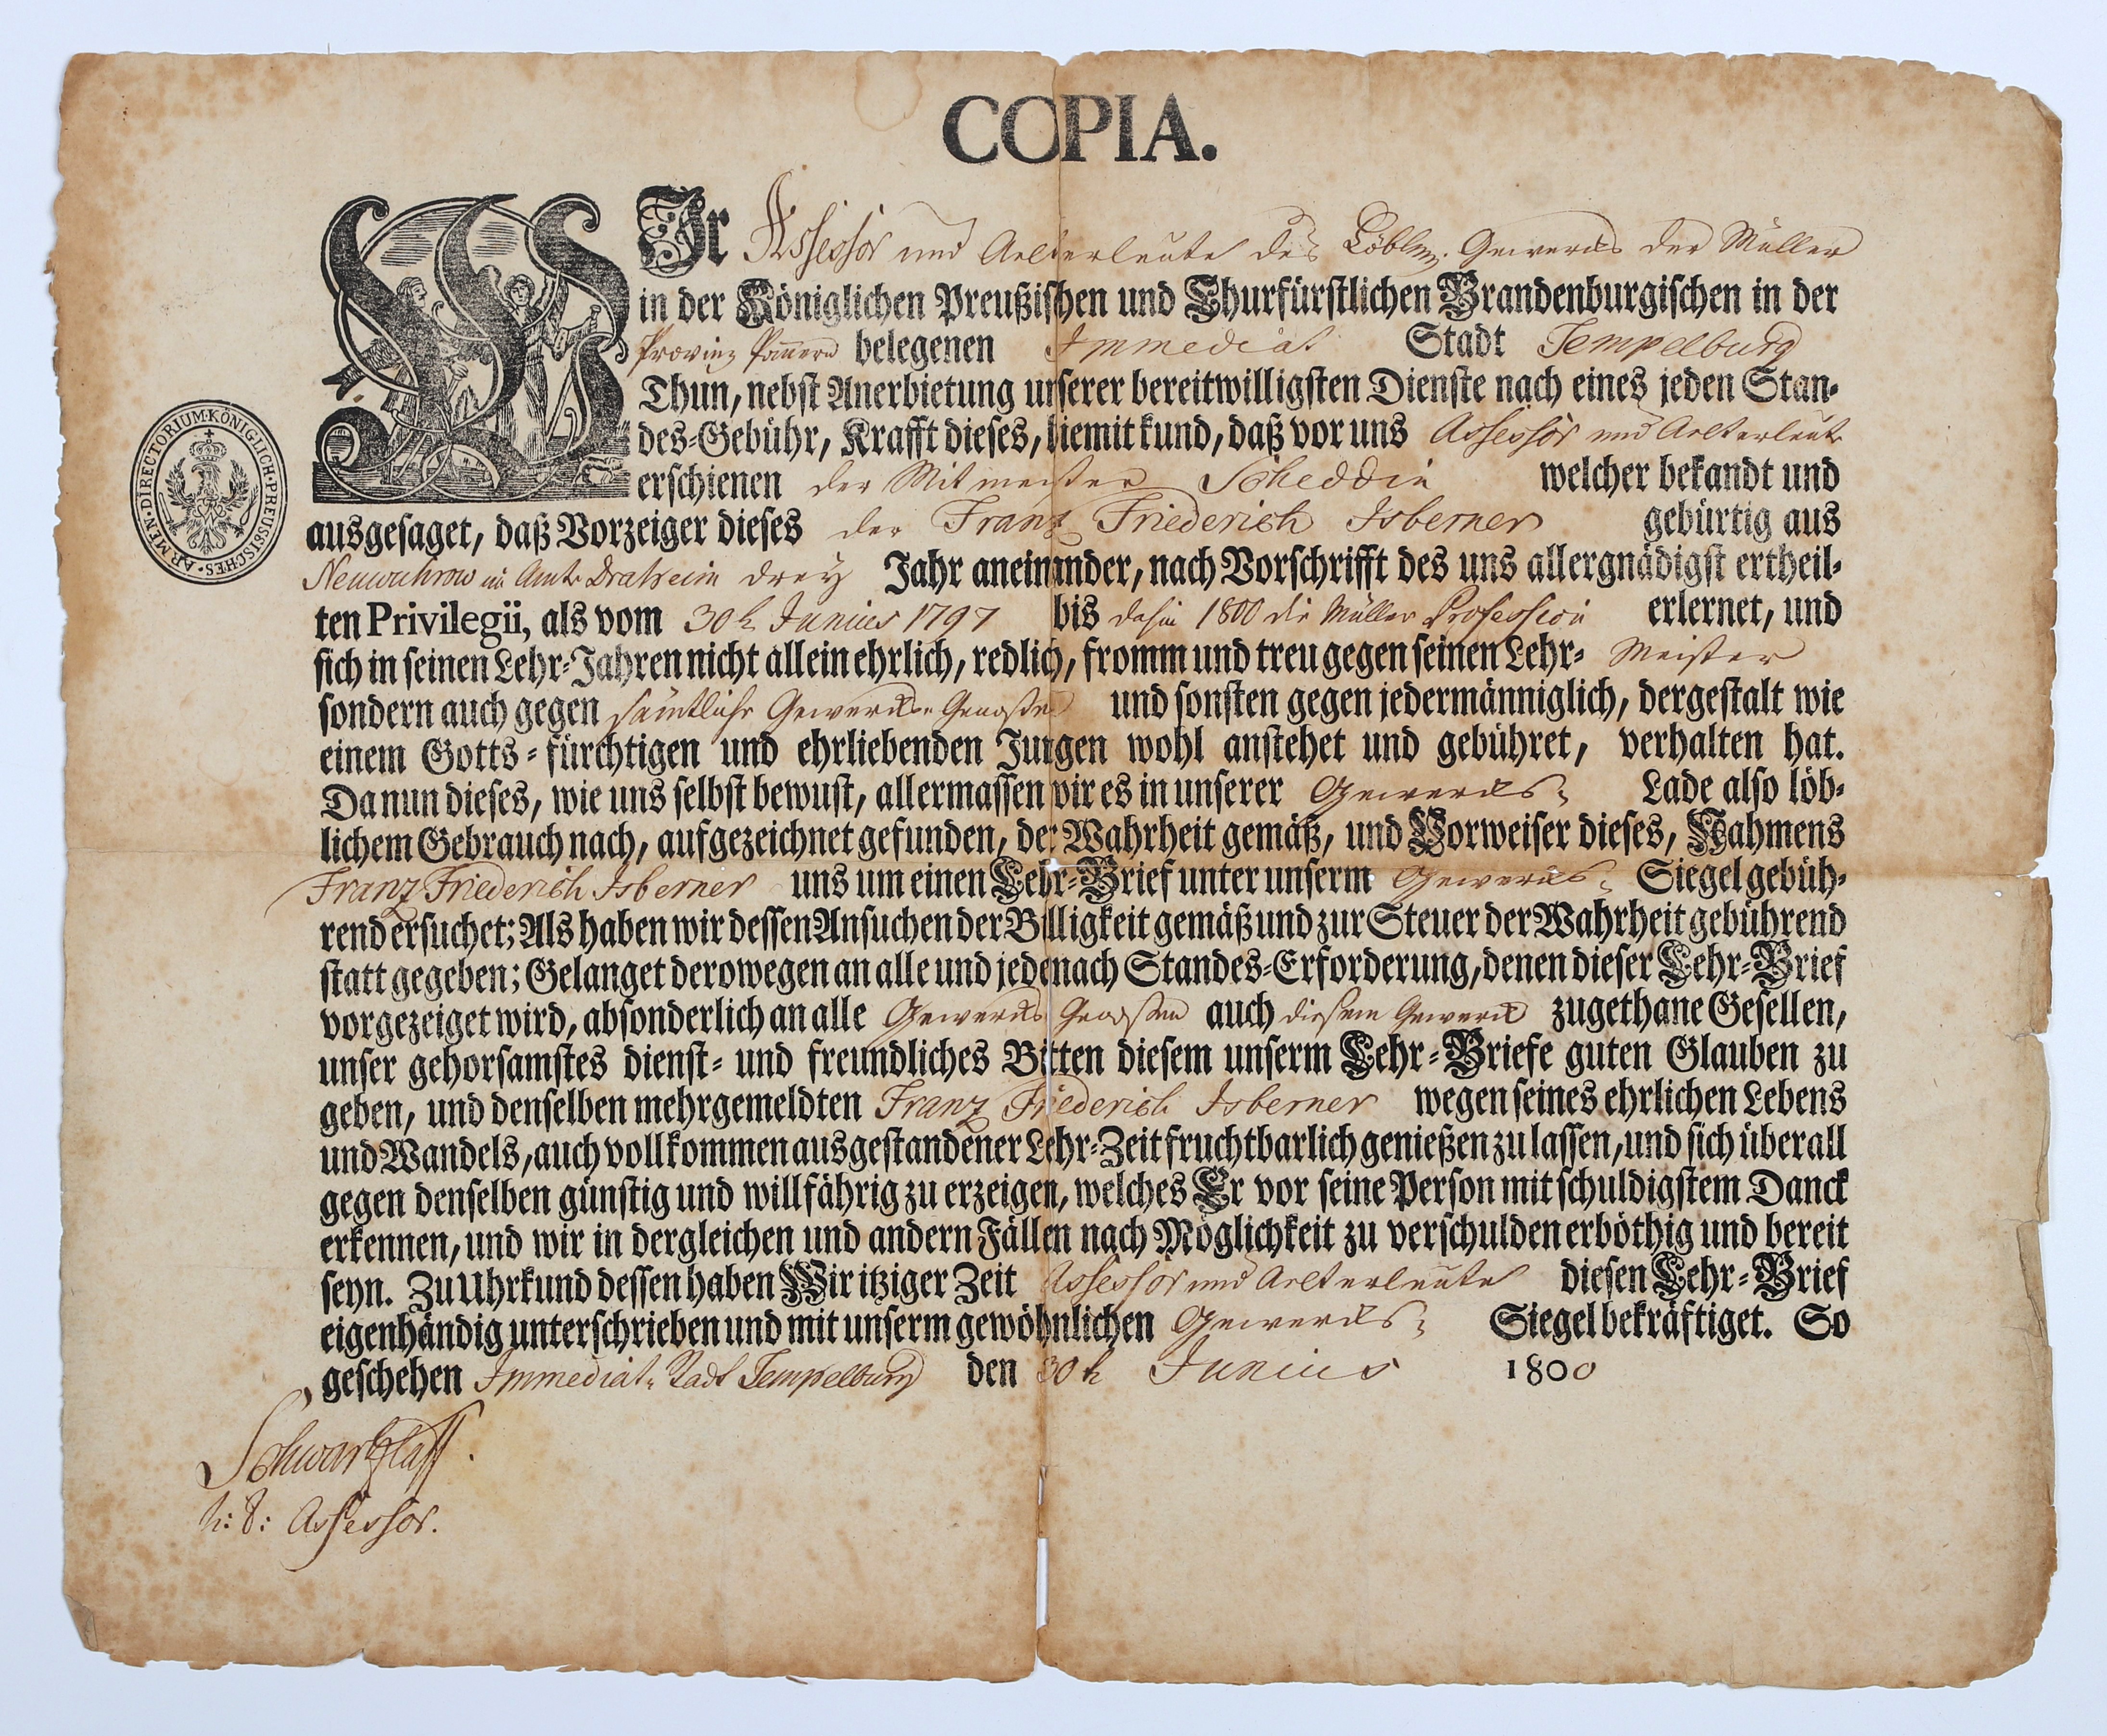 COPIA.
WIr Assessor und Aelterleute des Löbln. Gewercks der Müller
in der Königlichen Preußischen und Churfürstlichen Brandenburgischen in der
Provinz Pom̄ern belegenen Immediat Stadt Tempelburg
Thun, nebst Anerbietung unserer bereitwilligsten Dienste nach eines jeden Stan-
des-Gebühr, Krafft dieses, hiemit kund, daß vor uns Assessor und Aelterleute
erschienen der Mitmeister Scheddin welcher bekandt und
ausgesaget, daß Vorzeiger dieses der Franz Friederich Isberner gebürtig aus
Neuwuhrow im Amte Draheim drey Jahr aneinander, nach Vorschrifft des uns allergnädigst ertheil-
ten Privilegii, als vom 30t Junius 1797 bis dahin 1800 die Müller Profession erlernet, und
sich in seinen Lehr-Jahren nicht allein ehrlich, redlich, fromm und treu gegen seinen Lehr- Meister
sondern auch gegen sämtliche Gewercks-Genoßen und sonsten gegen jedermänniglich, dergestalt wie
einem Gotts-fürchtigen und ehrliebenden Jungen wohl anstehet und gebühret, verhalten hat.
Da nun dieses, wie uns selbst bewust, allermassen wir es in unserer Gewercks- Lade also löb-
lichem Gebrauch nach, aufgezeichnet gefunden, der Wahrheit gemäß, und Vorweiser dieses, Nahmens
Franz Friederich Isberner uns um einen Lehr-Brief unter unserm Gewercks- Siegel gebüh-
rend ersuchet; Als haben wir dessen Ansuchen der Billigkeit gemäß und zur Steuer der Wahrheit gebührend
statt gegeben; Gelanget derowegen an alle und jede nach Standes-Erforderung, denen dieser Lehr-Brief
vorgezeiget wird, absonderlich an alle Gewercks Genoßen auch diesem Gewerck zugethane Gesellen,
unser gehorsamstes dienst- und freundliches Bitten diesem unserm Lehr-Briefe guten Glauben zu
geben, und denselben mehrgemeldten Franz Friederich Isberner wegen seines ehrlichen Lebens
und Wandels, auch vollkommen ausgestandener Lehr-Zeit fruchtbarlich genießen zu lassen, und sich überall
gegen denselben günstig und willfährig zu erzeigen, welches Er vor seine Person mit schuldigstem Danck
erkennen, und wir in dergleichen und andern Fällen nach Möglichkeit zu verschulden erböthig und bereit
seyn. Zu Uhrkund dessen haben Wir itziger Zeit Assessor und Aelterleute diesen Lehr-Brief
eigenhändig unterschrieben und mit unserm gewöhnlichen Gewercks- Siegel bekräftiget. So
geschehen Immediat-Stadt Tempelburg den 30t Junius 1800
KÖNIGLICH·PREUSSISCHES·ARMEN·DIRECTORIUM·
Schwartzlaff.
Assessor.